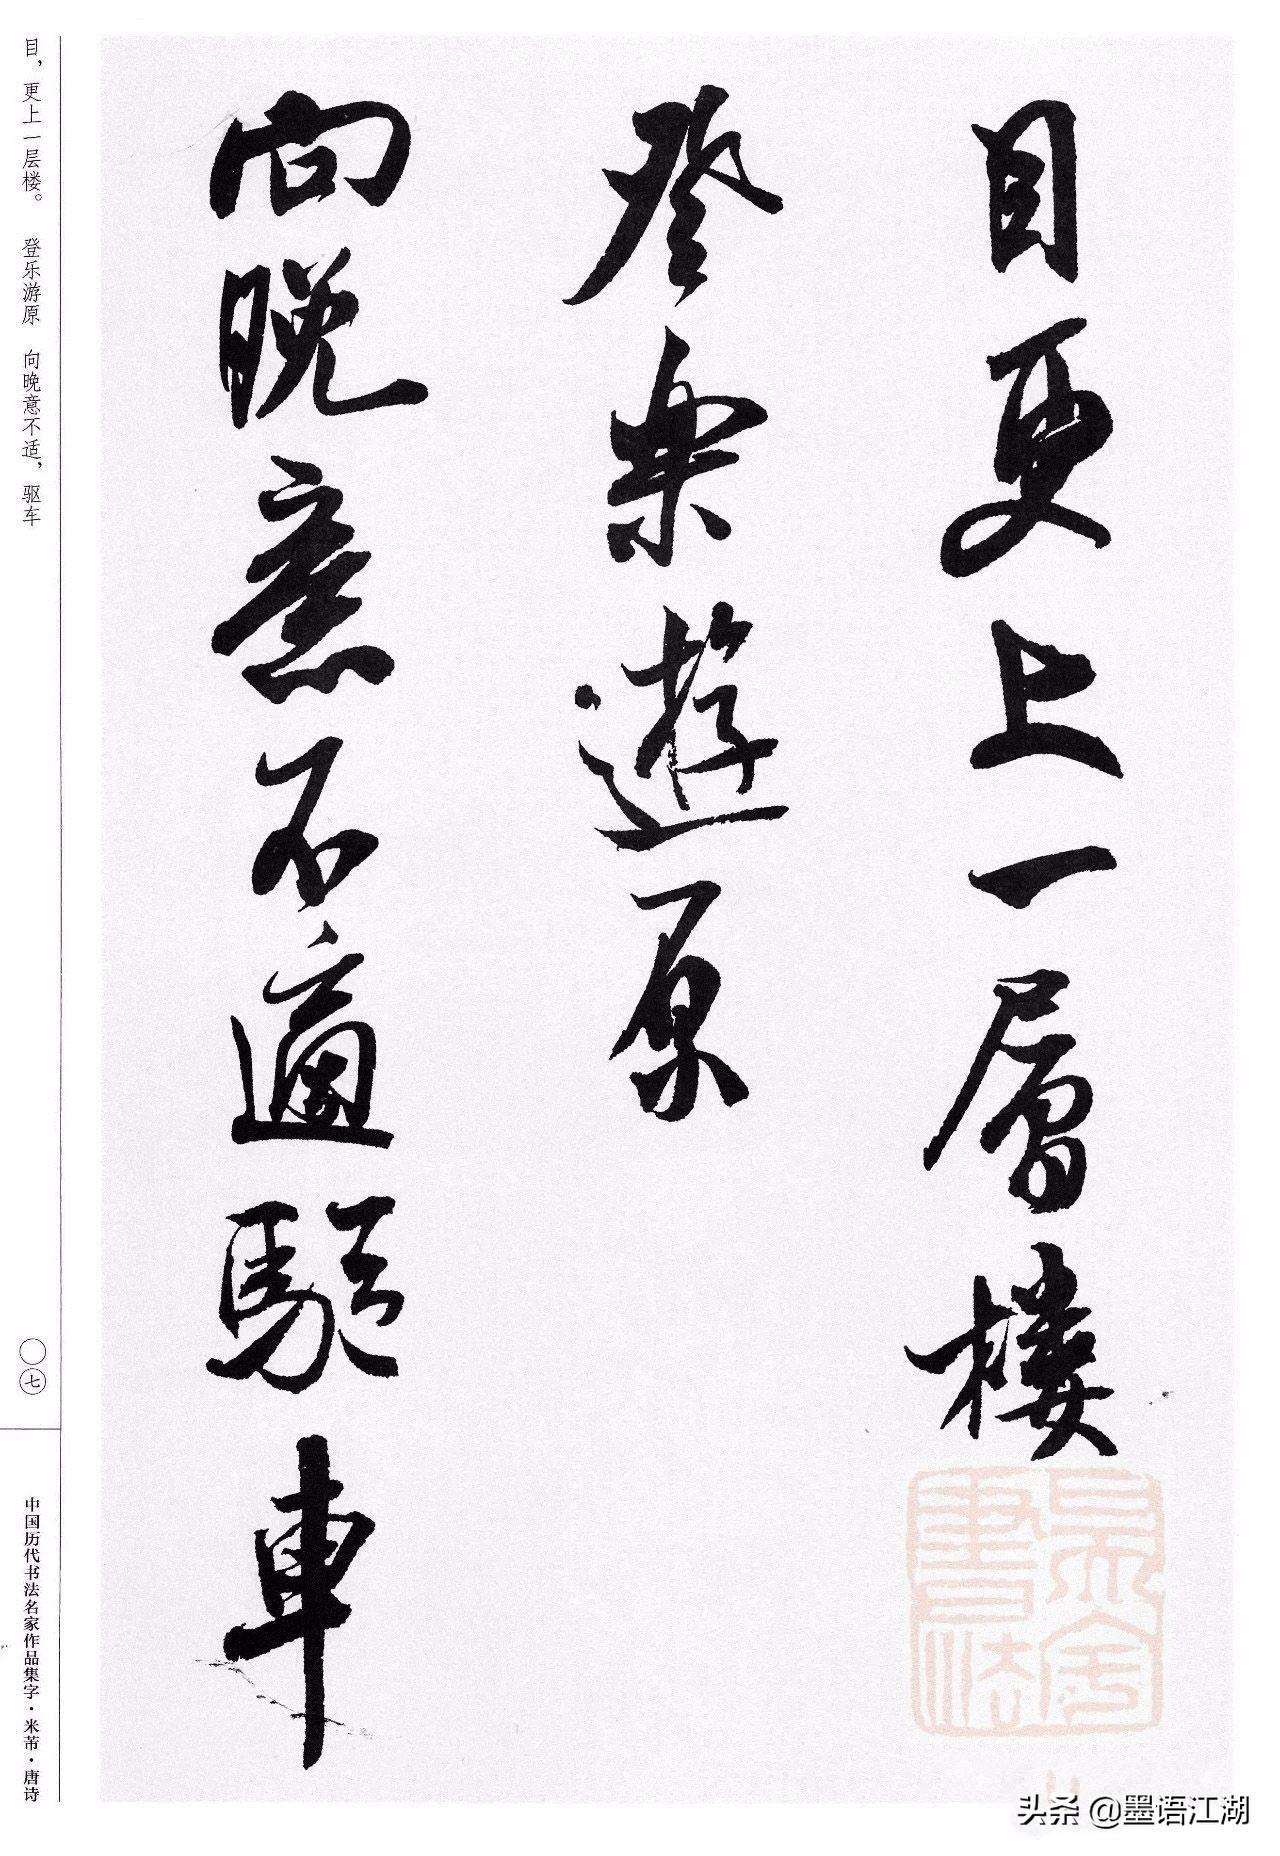 目更上一層樓
登樂遊原
向晚意不適驅車
目，更上一层楼。 登乐游原 向晚意不适，驱车
〇七
中国历代书法名家作品集字·米芾·唐诗
头条 @墨语江湖